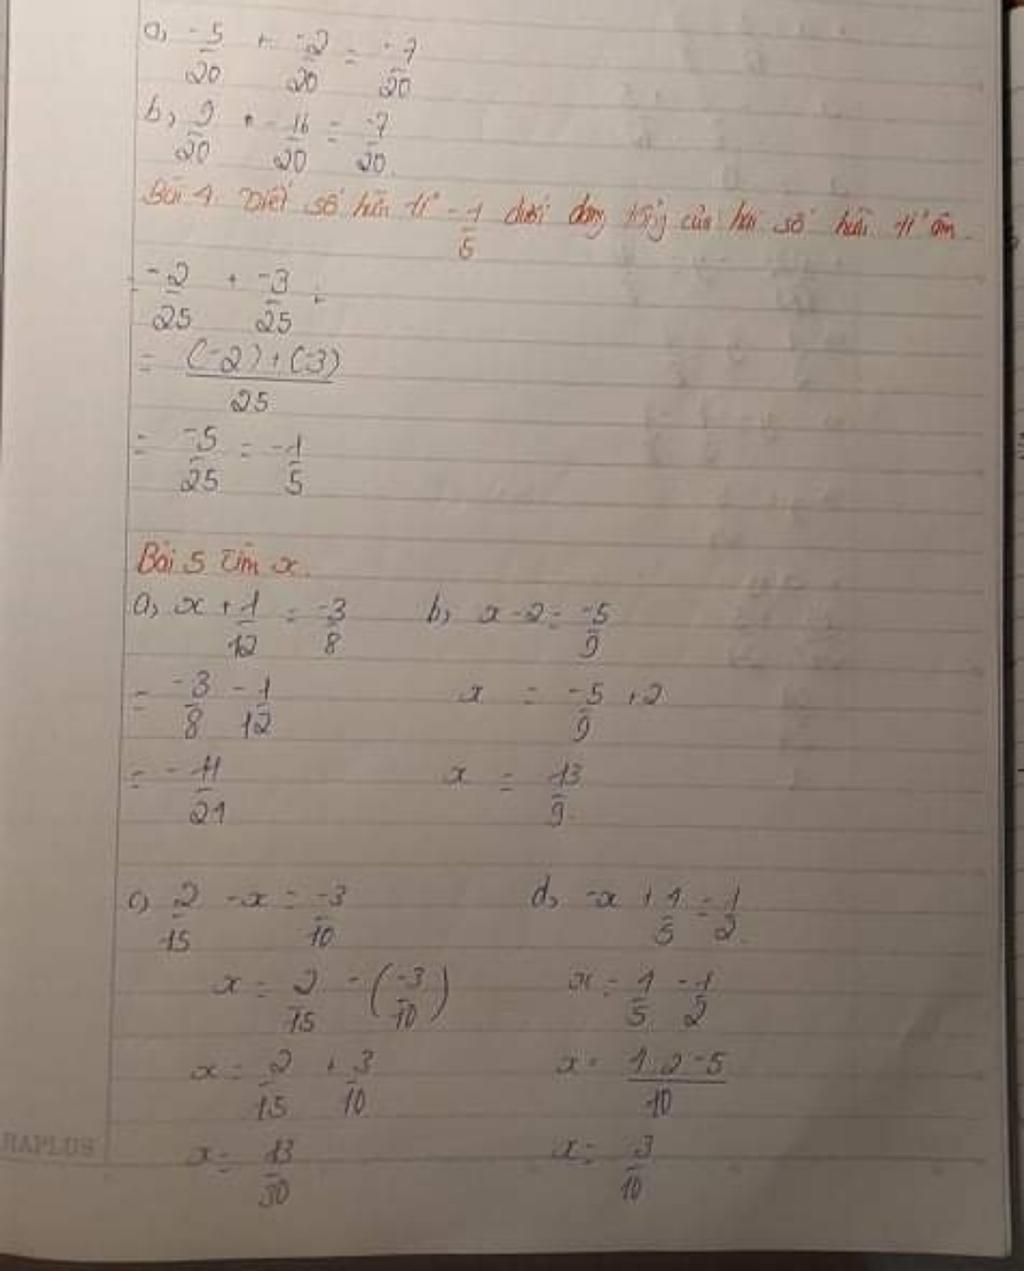 a, -5/20 + -2/20 = -7/20
b, 9/20 + -16/20 = -7/20.
Bài 4 Viết số hữu tỉ -1/5 dưới dạng tổng của hai số hữu tỉ âm.
-2/25 + -3/25 =
= (-2) + (-3)/25
= -5/25 = -1/5
Bài 5 Tìm x.
a, x + 1/12 = -3/8 b, x - 2 = -5/9
= -3/8 - 1/12 x = -5/9 + 2
= -11/21 x = 13/9
c, 2/15 - x = -3/10 d, -x + 1/5 = 1/2
x = 2/15 - (-3/10) x = 1/5 - 1/2
x = 2/15 + 3/10 x = 1.2 - 5/10
x = 13/30 x = 3/10
HAPLUS